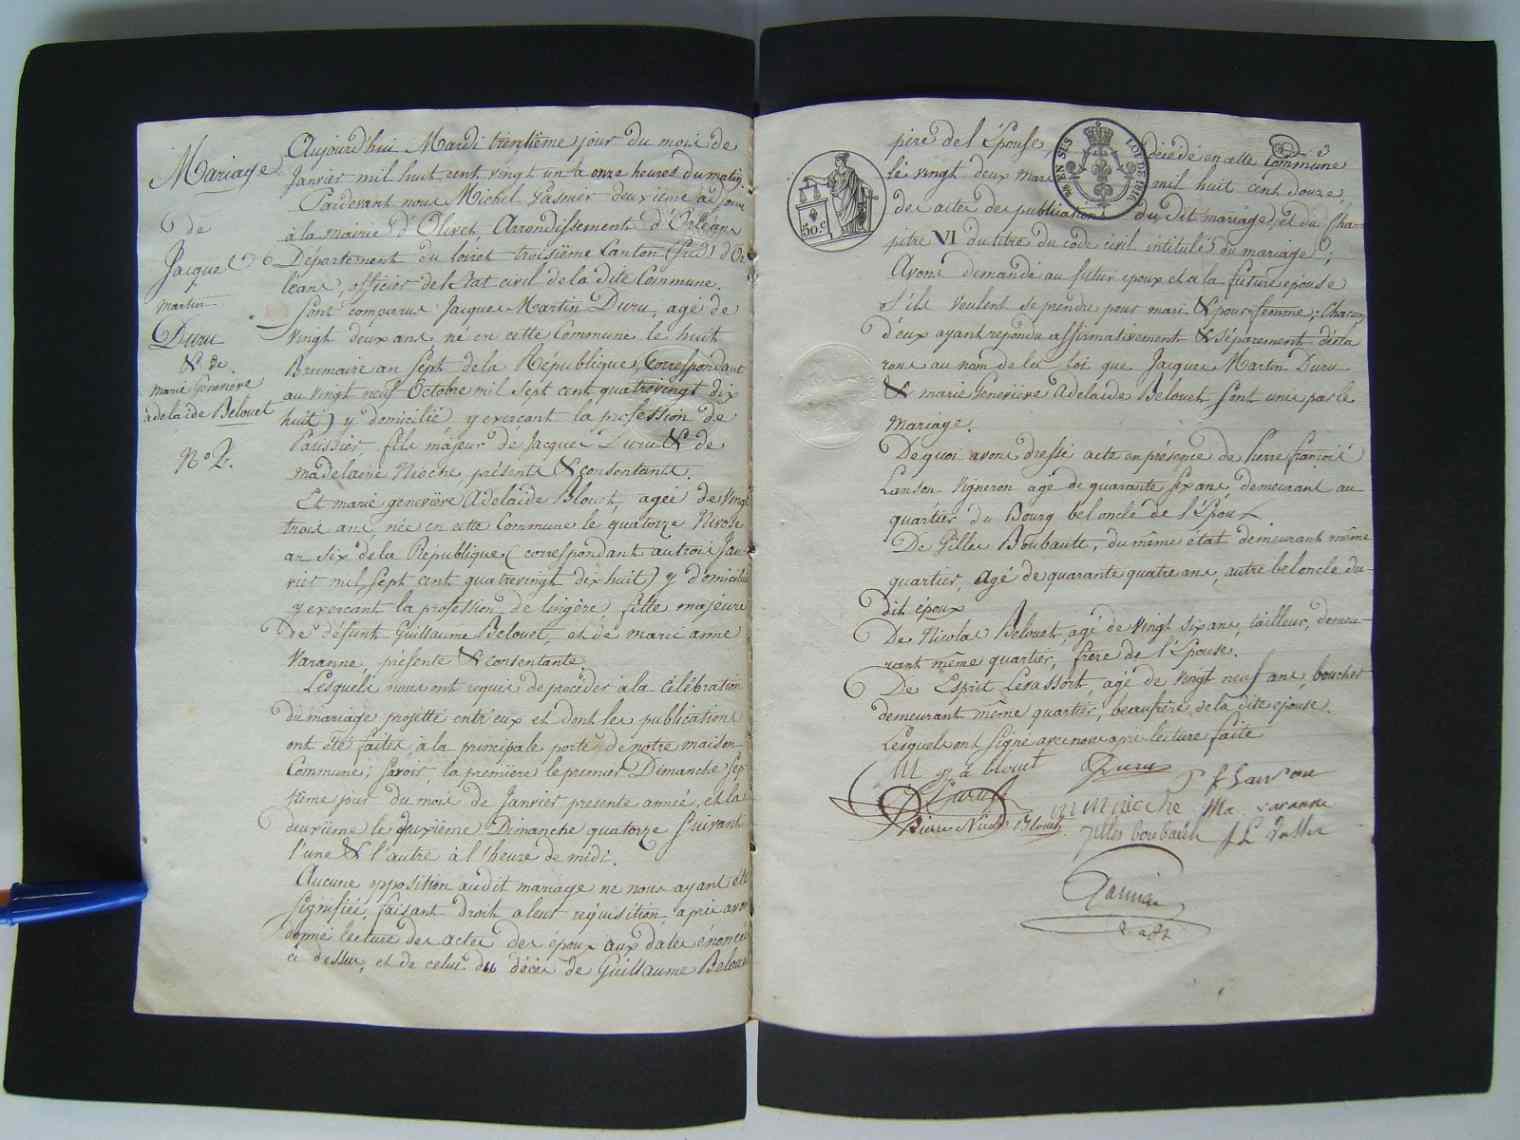 Mariage
de
Jacques
martin
Duru
& de
marie Genevieve
adelaide Belouet
No 2.
Aujourd'hui Mardi trentième jour du mois de
Janvier mil huit cent vingt un à onze heures du matin.
Pardevant nous Michel Gasnier deuxième adjoint
à la mairie d'Olivet, Arrondissement d'Orléans
Département du loiret troisième Canton (sud) d'Or
léans, officier de l'Etat civil de la dite Commune.
Sont comparus Jacques Martin Duru, agé de
vingt deux ans né en cette Commune le huit
Brumaire an Sept de la République (Correspondant
au vingt neuf Octobre mil sept cent quatrevingt dix
huit) y domicilié y exerçant la profession de
fils majeur de Jacques Duru & de
madelaine Nioche présents & consentants.
Et marie genevieve Adelaide Blouet, agée de vingt
trois ans née en cette Commune le quatorze Nivose
an six de la République (correspondant au trois Jan
vier mil sept cent quatrevingt dix huit) y domiciliée
y exerçant la profession de lingère fille majeure
de défunt Guillaume Belouet, et de marie anne
Varanne, présente & consentante
Lesquels nous ont requis de procéder à la célébration
du mariage projetté entr'eux et dont les publications
ont été faites, à la principale porte de notre maison
Commune; savoir, la première le premier Dimanche sep
tième jour du mois de Janvier présente année, et la
deuxième le deuxième Dimanche quatorze suivant
l'une & l'autre à l'heure de midi.
Aucune opposition audit mariage ne nous ayant été
signifiée, faisant droit à leur réquisition, après avoir
donné lecture des actes des époux aux dates énoncées
ci dessus, et de celui du décès de Guillaume Belouet
père de l'Epouse, décédé en cette Commune
le vingt deux mars mil huit cent douze,
des actes de publications du dit mariage, et du Cha-
pitre VI du titre du code civil intitulé du mariage;
Avons demandé au futur epoux et a la future epouse
s'ils veulent se prendre pour mari & pour femme; chacun
d'eux ayant repondu affirmativement & séparement décla
rons au nom de la loi que Jacques Martin Duru
& marie Genevieve Adelaide Belouet sont unis par le
mariage.
De quoi avons dressé acte en présence de Pierre françois
Lanson vigneron agé de quarante six ans, demeurant au
quartier du Bourg bel oncle de l'Epoux.
De Gilles Boubault, du même état demeurant même
quartier, agé de quarante quatre ans, autre bel oncle du-
dit époux
De Nicolas Belouet, agé de vingt six ans, tailleur, demeu-
rant même quartier, frère de l'Epouse.
De Esprit Levassort, agé de vingt neuf ans, boucher
demeurant même quartier, beaufrère de la dite epouse.
Lesquels ont signé avec nous après lecture faite
M g a blouet Duru P f Lanson
Duru m m nioche Ma varanne
Pierre Nicolas Blouet gilles boubault
Gasnier
50.c